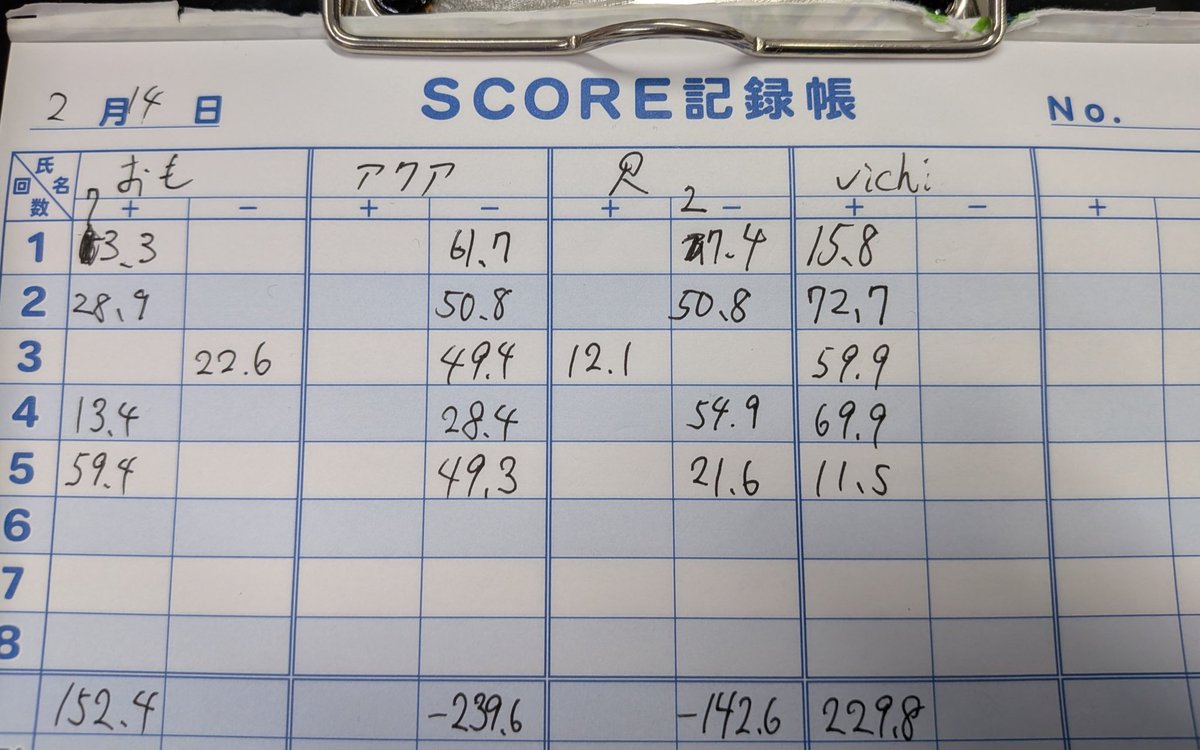 2月14日 SCORE記録帳 No.
氏名 回数 おも アクア 尺 vichi
+ − + − + − + − +
1 73.3 61.7 27.4 15.8
2 28.9 50.8 50.8 72.7
3 22.6 49.4 12.1 59.9
4 13.4 28.4 54.9 69.9
5 59.4 49.3 21.6 11.5
6
7
8
152.4 -239.6 -142.6 229.8